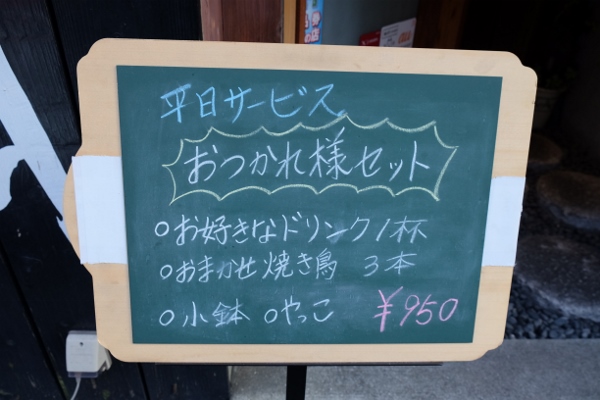 平日サービス
おつかれ様セット
○お好きなドリンク1杯
○おまかせ焼き鳥 3本
○小鉢 ○やっこ ¥950